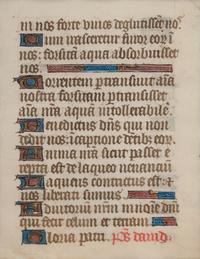 in nos forte vivos deglutisset nos
Cum irasceretur furor eor̄ ī
nos: forsitā aqua absorbuisset
nos.
Torrentem pertransiuit aīa
nostra forsitan pertransisset
aīa nr̄a aquā intollerabilē.
Benedictus dn̄s qui non
dedit nos: ī captione dētib; eor̄.
Anima nr̄a sicut passer e
repta est de laqueo venanciū
Laqueus contritus est: &
nos liberati sumus
Adiutoriū nr̄m in noīe dn̄i
qui fecit celum et terram
Gloria patri. ps̄ dauid.